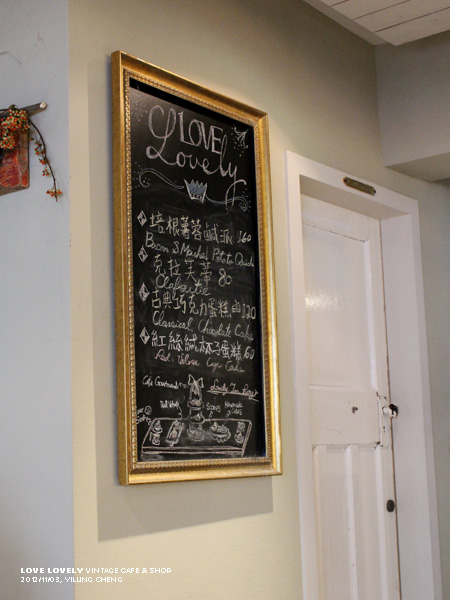 LOVE
Lovely
培根薯蓉鹹派 160
Bacon & Mashed Potato Quiche
克拉芙蒂 80
Clafoutis
古典巧克力蛋糕 120
Classical Chocolate Cake
紅絲絨杯子蛋糕 60
Red Velvet Cup Cake
Scones
LOVE LOVELY VINTAGE CAFE & SHOP
2012/11/03, VILUNG CHENG